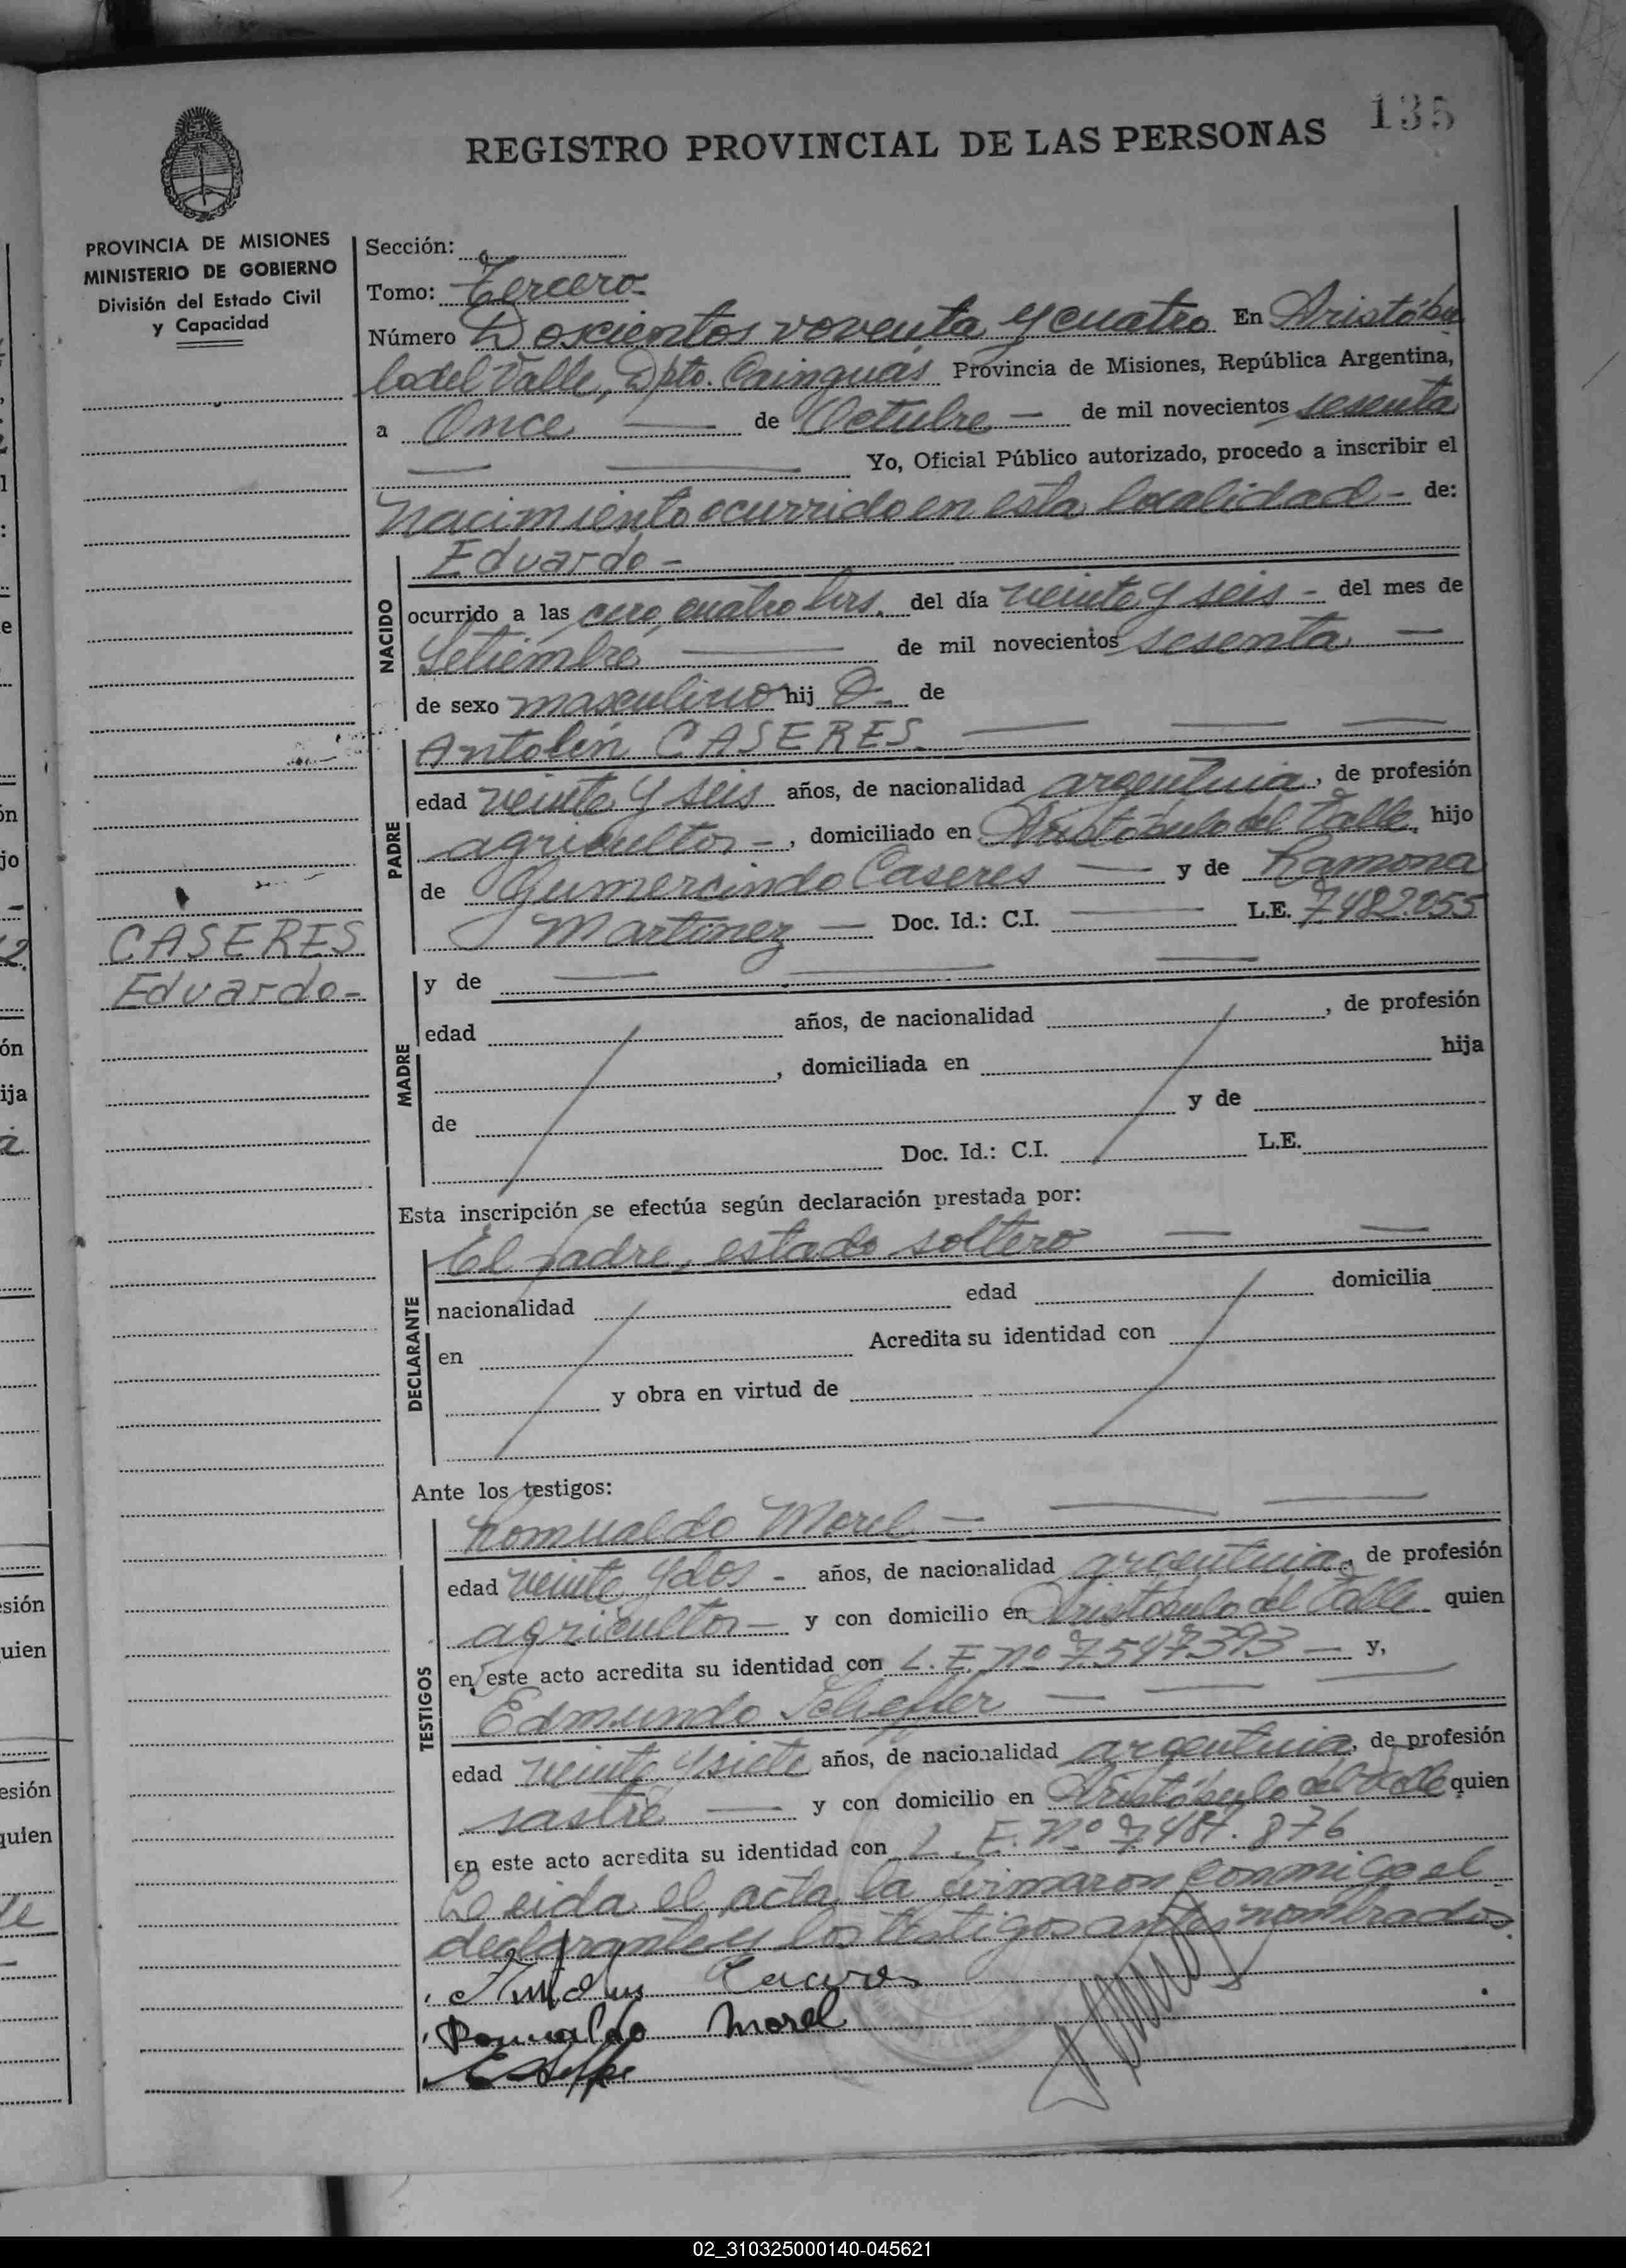 135
REGISTRO PROVINCIAL DE LAS PERSONAS
PROVINCIA DE MISIONES
MINISTERIO DE GOBIERNO
División del Estado Civil
y Capacidad
Sección:
Tomo: Tercero-
Número Doscientos noventa y cuatro En Aristóbu
lo del Valle, Dpto. Cainguás Provincia de Misiones, República Argentina,
a Once — de Octubre — de mil novecientos sesenta
Yo, Oficial Público autorizado, procedo a inscribir el
Nacimiento ocurrido en esta localidad - de:
NACIDO
Eduardo -
ocurrido a las cero, cuatro hrs. del día veinte y seis - del mes de
Setiembre — de mil novecientos sesenta —
de sexo masculino hij O- de
PADRE
Antolin CASERES. —
edad veinte y seis años, de nacionalidad argentina, de profesión
agricultor -, domiciliado en Aristóbulo del Valle, hijo
de Gumercindo Caseres — y de Ramona
Martinez — Doc. Id.: C.I. — L.E. 7482.055
CASERES
Eduardo-
MADRE
y de —
edad años, de nacionalidad , de profesión
, domiciliada en hija
de y de
Doc. Id.: C.I. L.E.
Esta inscripción se efectúa según declaración prestada por:
DECLARANTE
El padre, estado soltero —
nacionalidad edad domicilia
en Acredita su identidad con
y obra en virtud de
Ante los testigos:
TESTIGOS
Romualdo Morel —
edad veinte y dos - años, de nacionalidad argentina, de profesión
agricultor — y con domicilio en Aristóbulo del Valle quien
en este acto acredita su identidad con L.E. Nº 7.547393 — y,
Edmundo Scheffer —
edad veinte y siete años, de nacionalidad argentina, de profesión
sastre — y con domicilio en Aristóbulo del Valle quien
en este acto acredita su identidad con L.E. Nº 7487.876
Leida el acta la firmaron conmigo el
declarante y los testigos antes nombrados.
Romualdo Morel
02_310325000140-045621